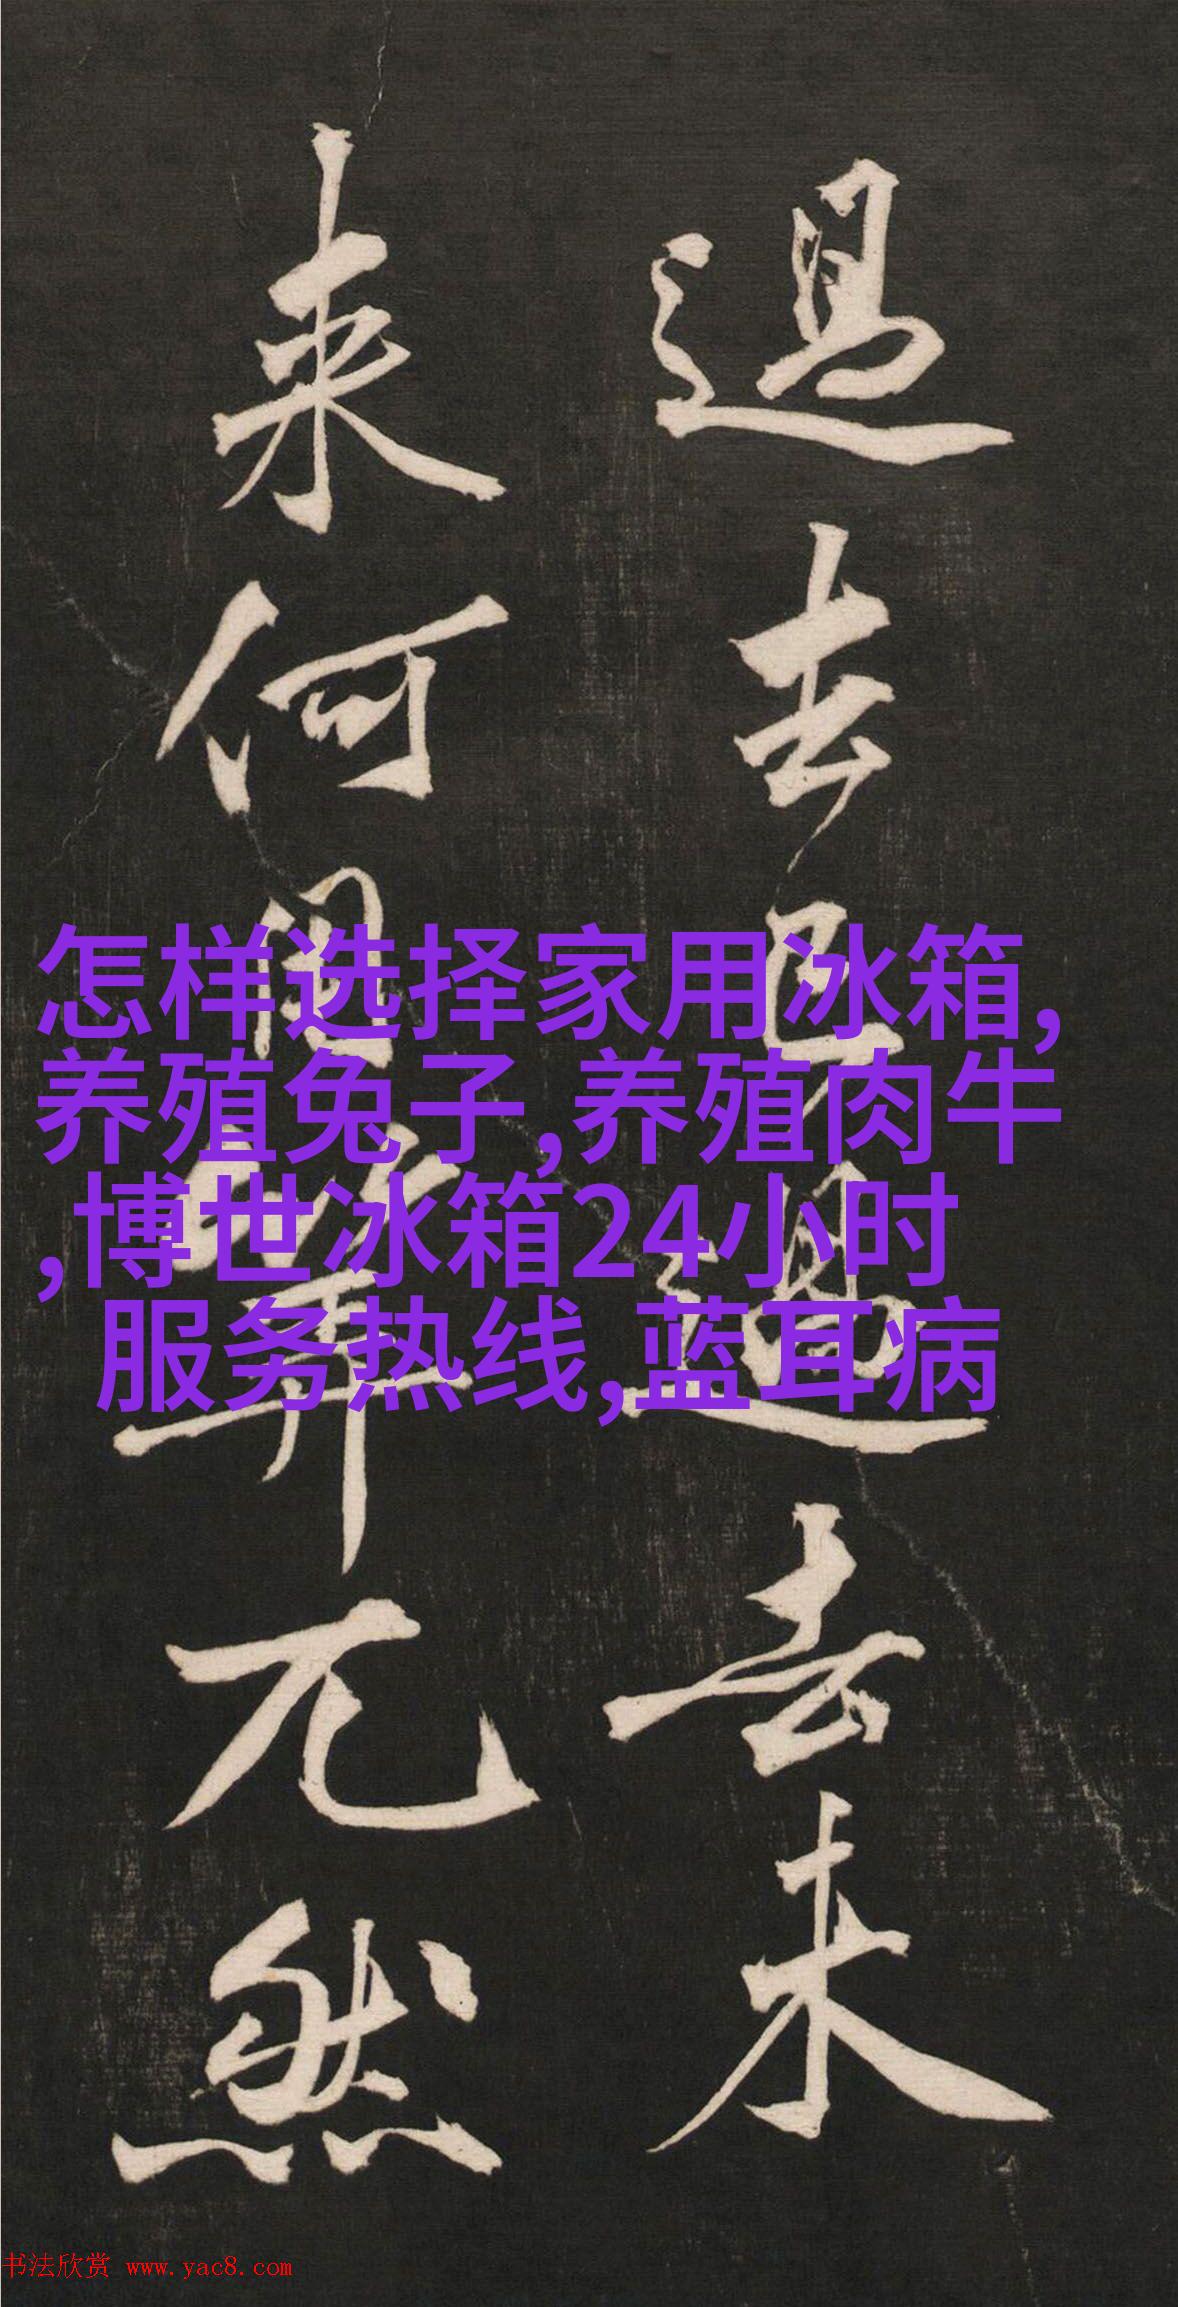 過去已過去未
来何筭兀然
怎样选择家用冰箱,
养殖兔子,养殖肉牛
,博世冰箱24小时
服务热线,蓝耳病
书法欣赏 www.yac8.com